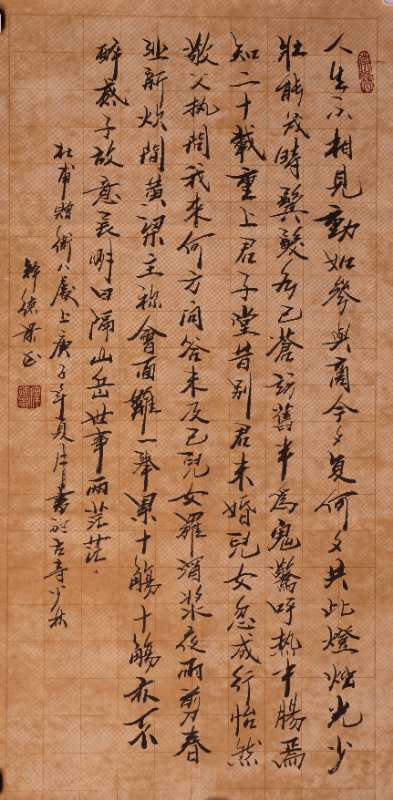 人生不相見動如參與商今夕复何夕共此燈燭光少
壮能幾時鬓髮各已蒼訪舊半為鬼驚呼熱中腸焉
知二十載重上君子堂昔別君未婚兒女忽成行怡然
敬父执問我来何方问答未及已兒女羅酒漿夜雨剪春
韭新炊間黄粱主称會面難一舉累十觴十觴亦不
醉感子故意長明日隔山岳世事兩茫茫
杜甫贈衛八處士庚子年夏月書於古寺少林